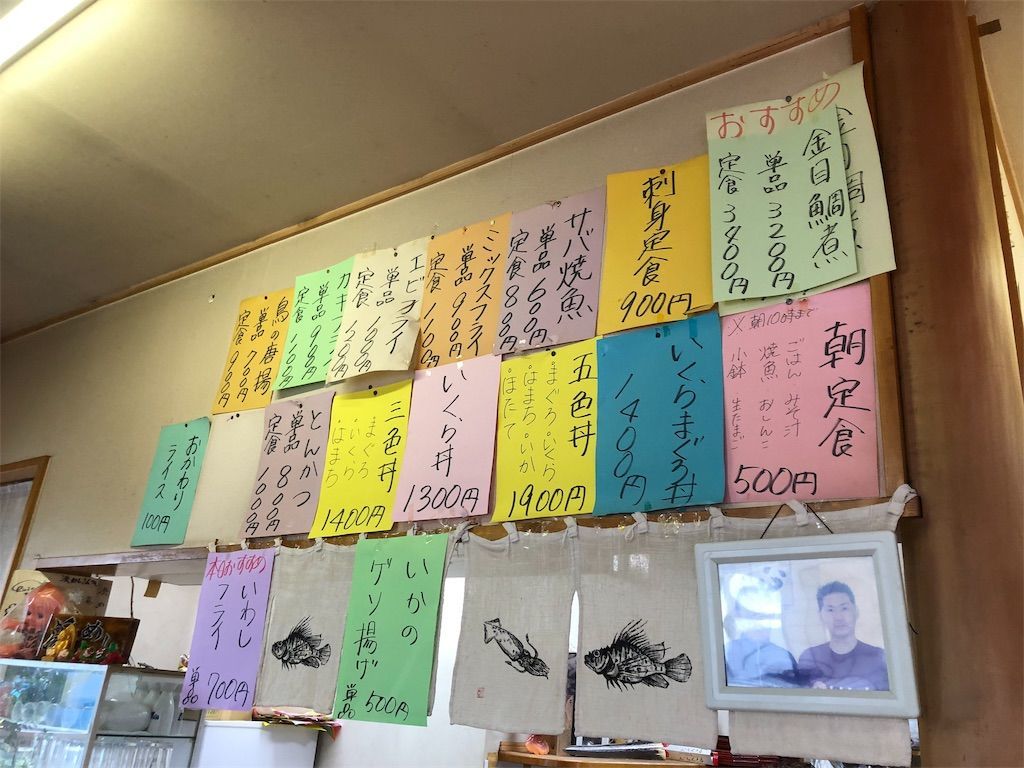 おすすめ
金目鯛煮
単品 3200円
定食 3400円
刺身定食
900円
サバ焼魚
単品 600円
定食 800円
ミックスフライ
単品 900円
定食 1100円
エビフライ
単品
定食
カキフライ
単品 900円
定食 1100円
鳥の唐揚
単品 700円
定食 900円
朝定食
※朝10時まで
ごはん みそ汁
焼魚 おしんこ
小鉢 生たまご
500円
いくらまぐろ丼
1400円
五色丼
・まぐろ・いくら
・はまち・いか
・ほたて
1900円
いくら丼
1300円
三色丼
・まぐろ
・いくら
・はまち
1400円
とんかつ
単品 800円
定食 1000円
おかわり
ライス
100円
本日おすすめ
いわし
フライ
単品 700円
いかの
ゲソ揚げ
単品 500円